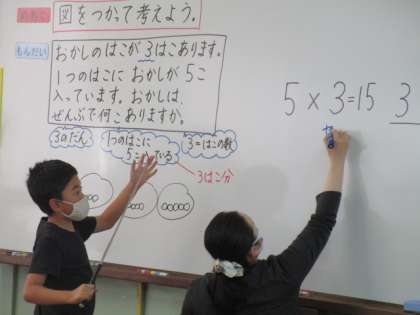 めあて 図をつかって考えよう。
もんだい
おかしのはこが3はこあります。
1つのはこにおかしが5こ
入っています。おかしは、
ぜんぶで何こありますか。
3のだん
1つのはこに
5こ入っている
3=はこの数
3はこ分
5×3=15 3